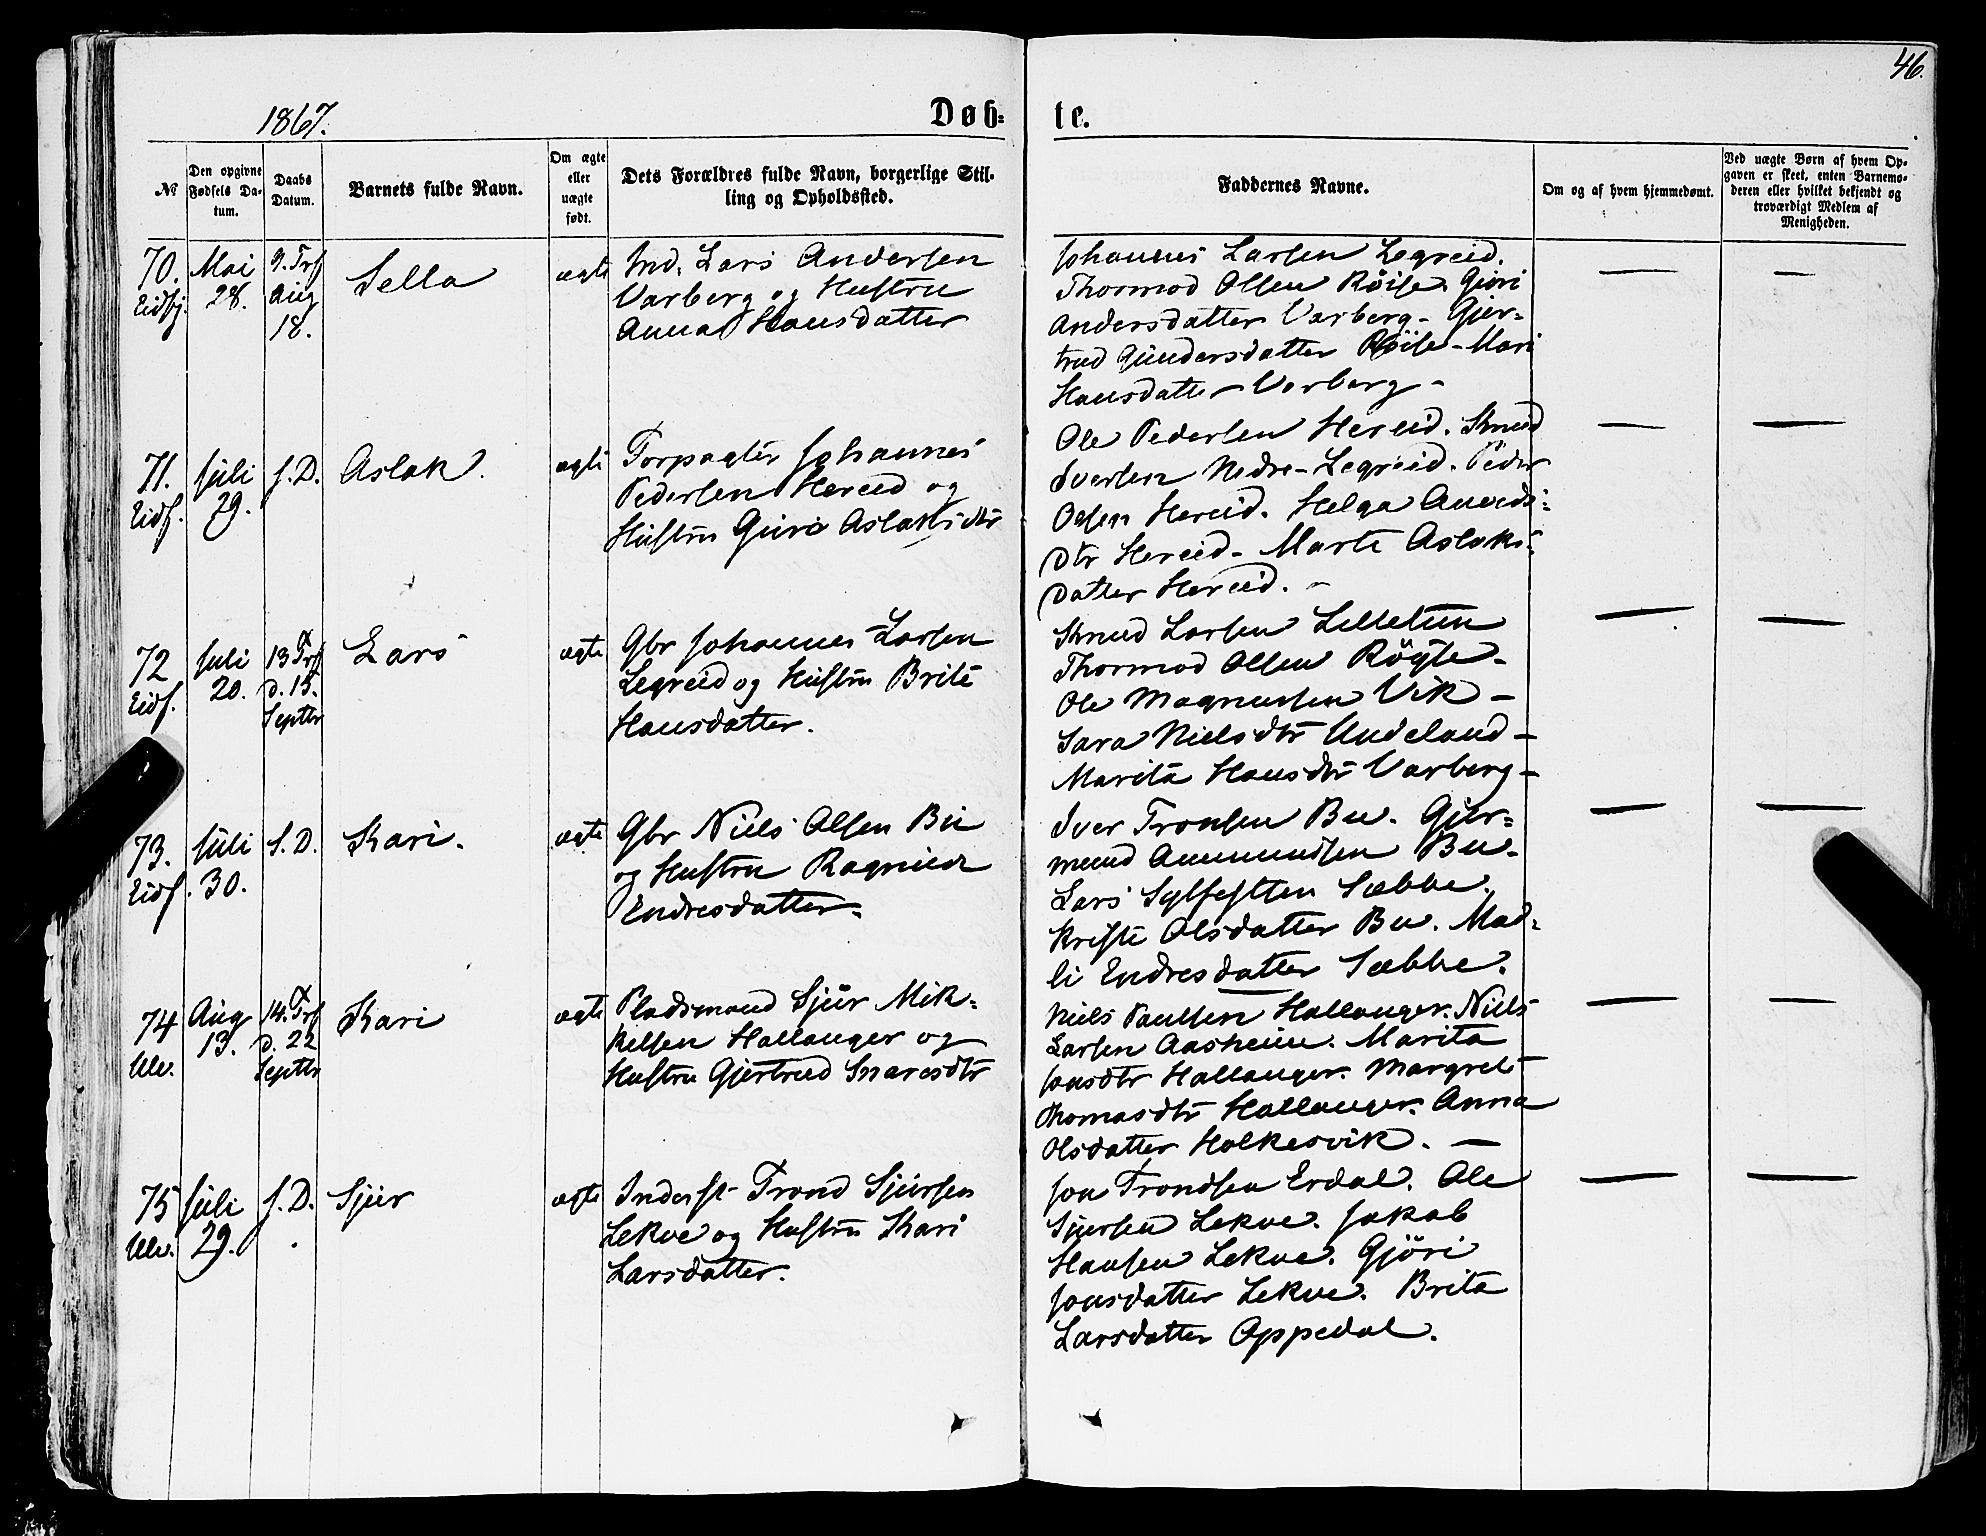 46.
1867.
Døb-
te.
№
Den opgivne Fødsels Da-
tum.
Daabs
Datum.
Barnets fulde Navn.
Om ægte
eller
uægte
født.
Dets Forældres fulde Navn, borgerlige Stil-
ling og Opholdssted.
Faddernes Navne.
Om og af hvem hjemmedøbt.
Ved uægte Børn af hvem Op-
gaven er skeet, enten Barnemo-
deren eller hvilket bekjendt og
troværdigt Medlem af
Menigheden.
70.
Eidfj.
Mai
28.
9. Trf
Aug
18.
Sella
ægte
Ind. Lars Andersen
Varberg og Hustru
Anna Hansdatter
Johannes Larsen Legreid.
Thormod Olsen Röise. Gjöri
Andersdatter Varberg - Gjer-
trud Gundersdatter Röise - Mari
Hansdatter Varberg -
71.
Eidf.
Juli
29.
s. D.
Aslak.
ægte
Forpagter Johannes
Pedersen Hereid og
Hustru Guro Aslaksdtr
Ole Pedersen Hereid. Knud
Iversen Nedre-Legreid. Peder
Olsen Hereid. Helga
dtr Hereid - Marte Aslaks-
datter Hereid. -
72
Eidf.
Juli
20.
13 Trf
d. 15.
Septbr
Lars
ægte
Gbr Johannes Larsen
Legreid og Hustru Brite
Hansdatter.
Knud Larsen Lilletun
Thormod Olsen
Ole Magnussen Vik -
Sara Nielsdtr Undeland -
Marita Hansdtr Varberg -
73.
Eidf.
Juli
30.
s. D.
Kari.
ægte
Gbr Niels Olsen Bu
og Hustru Ragnild
Endresdatter.
Iver Tronsen Bu. Gjer-
mund Ammundsen Bu.
Lars Sylfesten Sæbbe.
Kriste Olsdatter Bu. Mad-
li Endresdatter Sæbbe.
74
Ulv.
Aug
13.
14. Trf
d. 22
Septbr
Kari
ægte
Pladsmand Sjur Mik-
kelsen Hallanger og
Hustru Gjertrud Snaresdtr
Niels Paulsen Hallanger. Niels
Larsen Aasheim. Marita
Jonsdtr Hallanger. Margret
Thomasdtr Hallanger. Anna
Olsdatter Holkesvik. -
75
Ulv.
Juli
29.
s. D.
Sjur
ægte
Inderst Trond Sjursen
Lekve og Hustru Kari
Larsdatter.
Jon Trondsen Erdal. Ole
Sjursen Lekve. Jakob
Hansen Lekve. Gjöri
Jonsdatter Lekve. Brita
Larsdatter Oppedal.